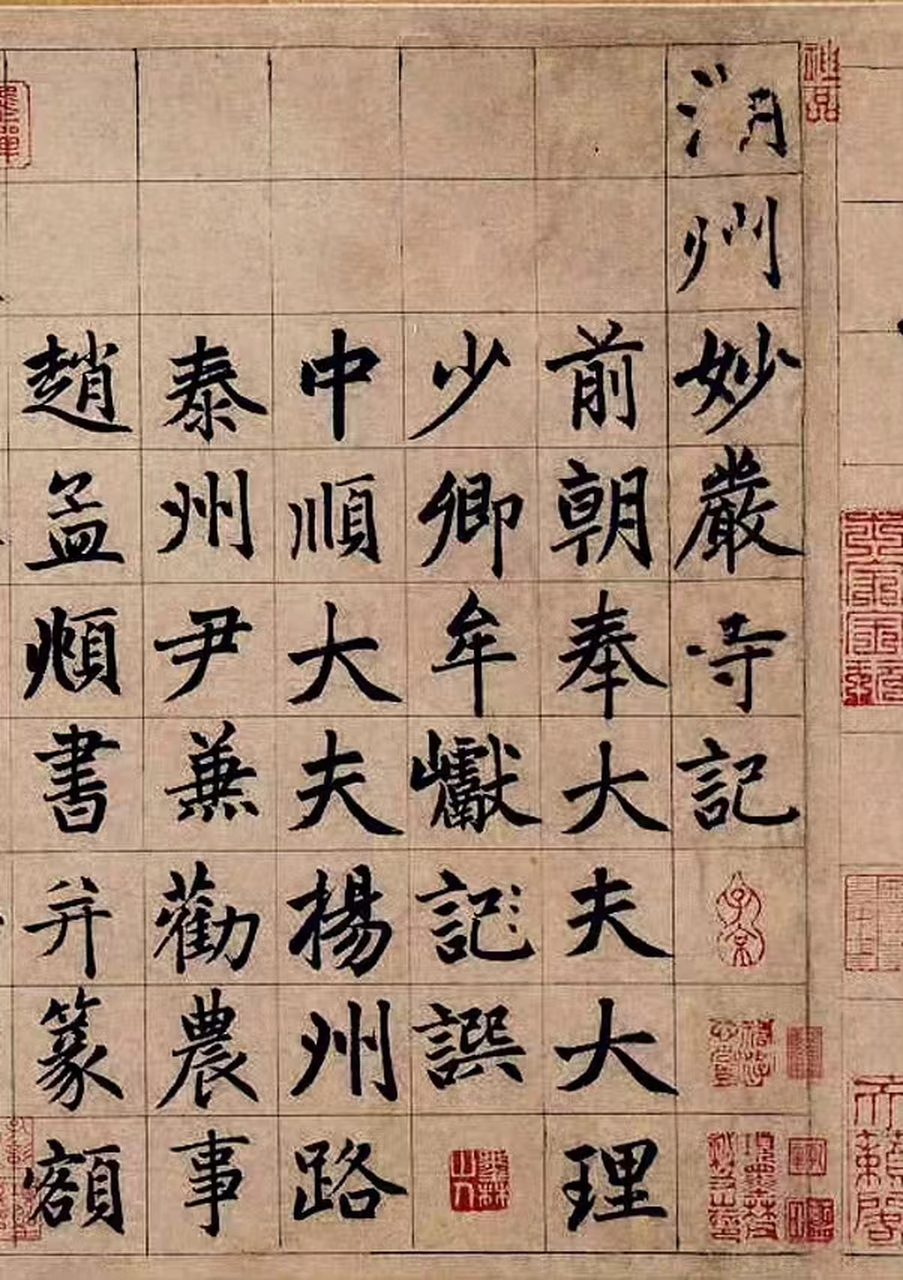 神品
天籟閣
湖州妙嚴寺記
子京
前朝奉大夫大理
少卿牟巘記譔
中順大夫揚州路
泰州尹兼勸農事
趙孟頫書并篆額